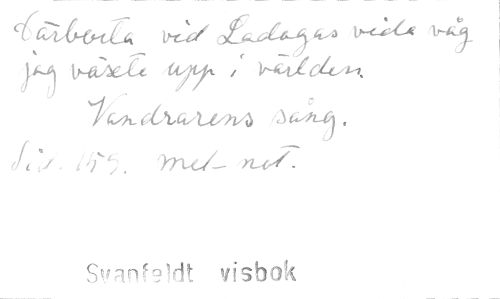 Därborta vid Ladogas vida våg
jag växte upp i världen.
Vandrarens sång.
Sid. 159. mel-not.
Svanfeldt visbok